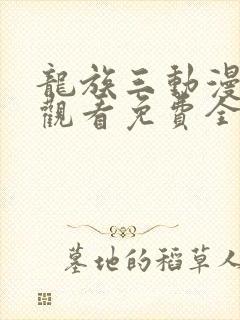 龍族三動漫
觀看免費全
墓地的稻草人